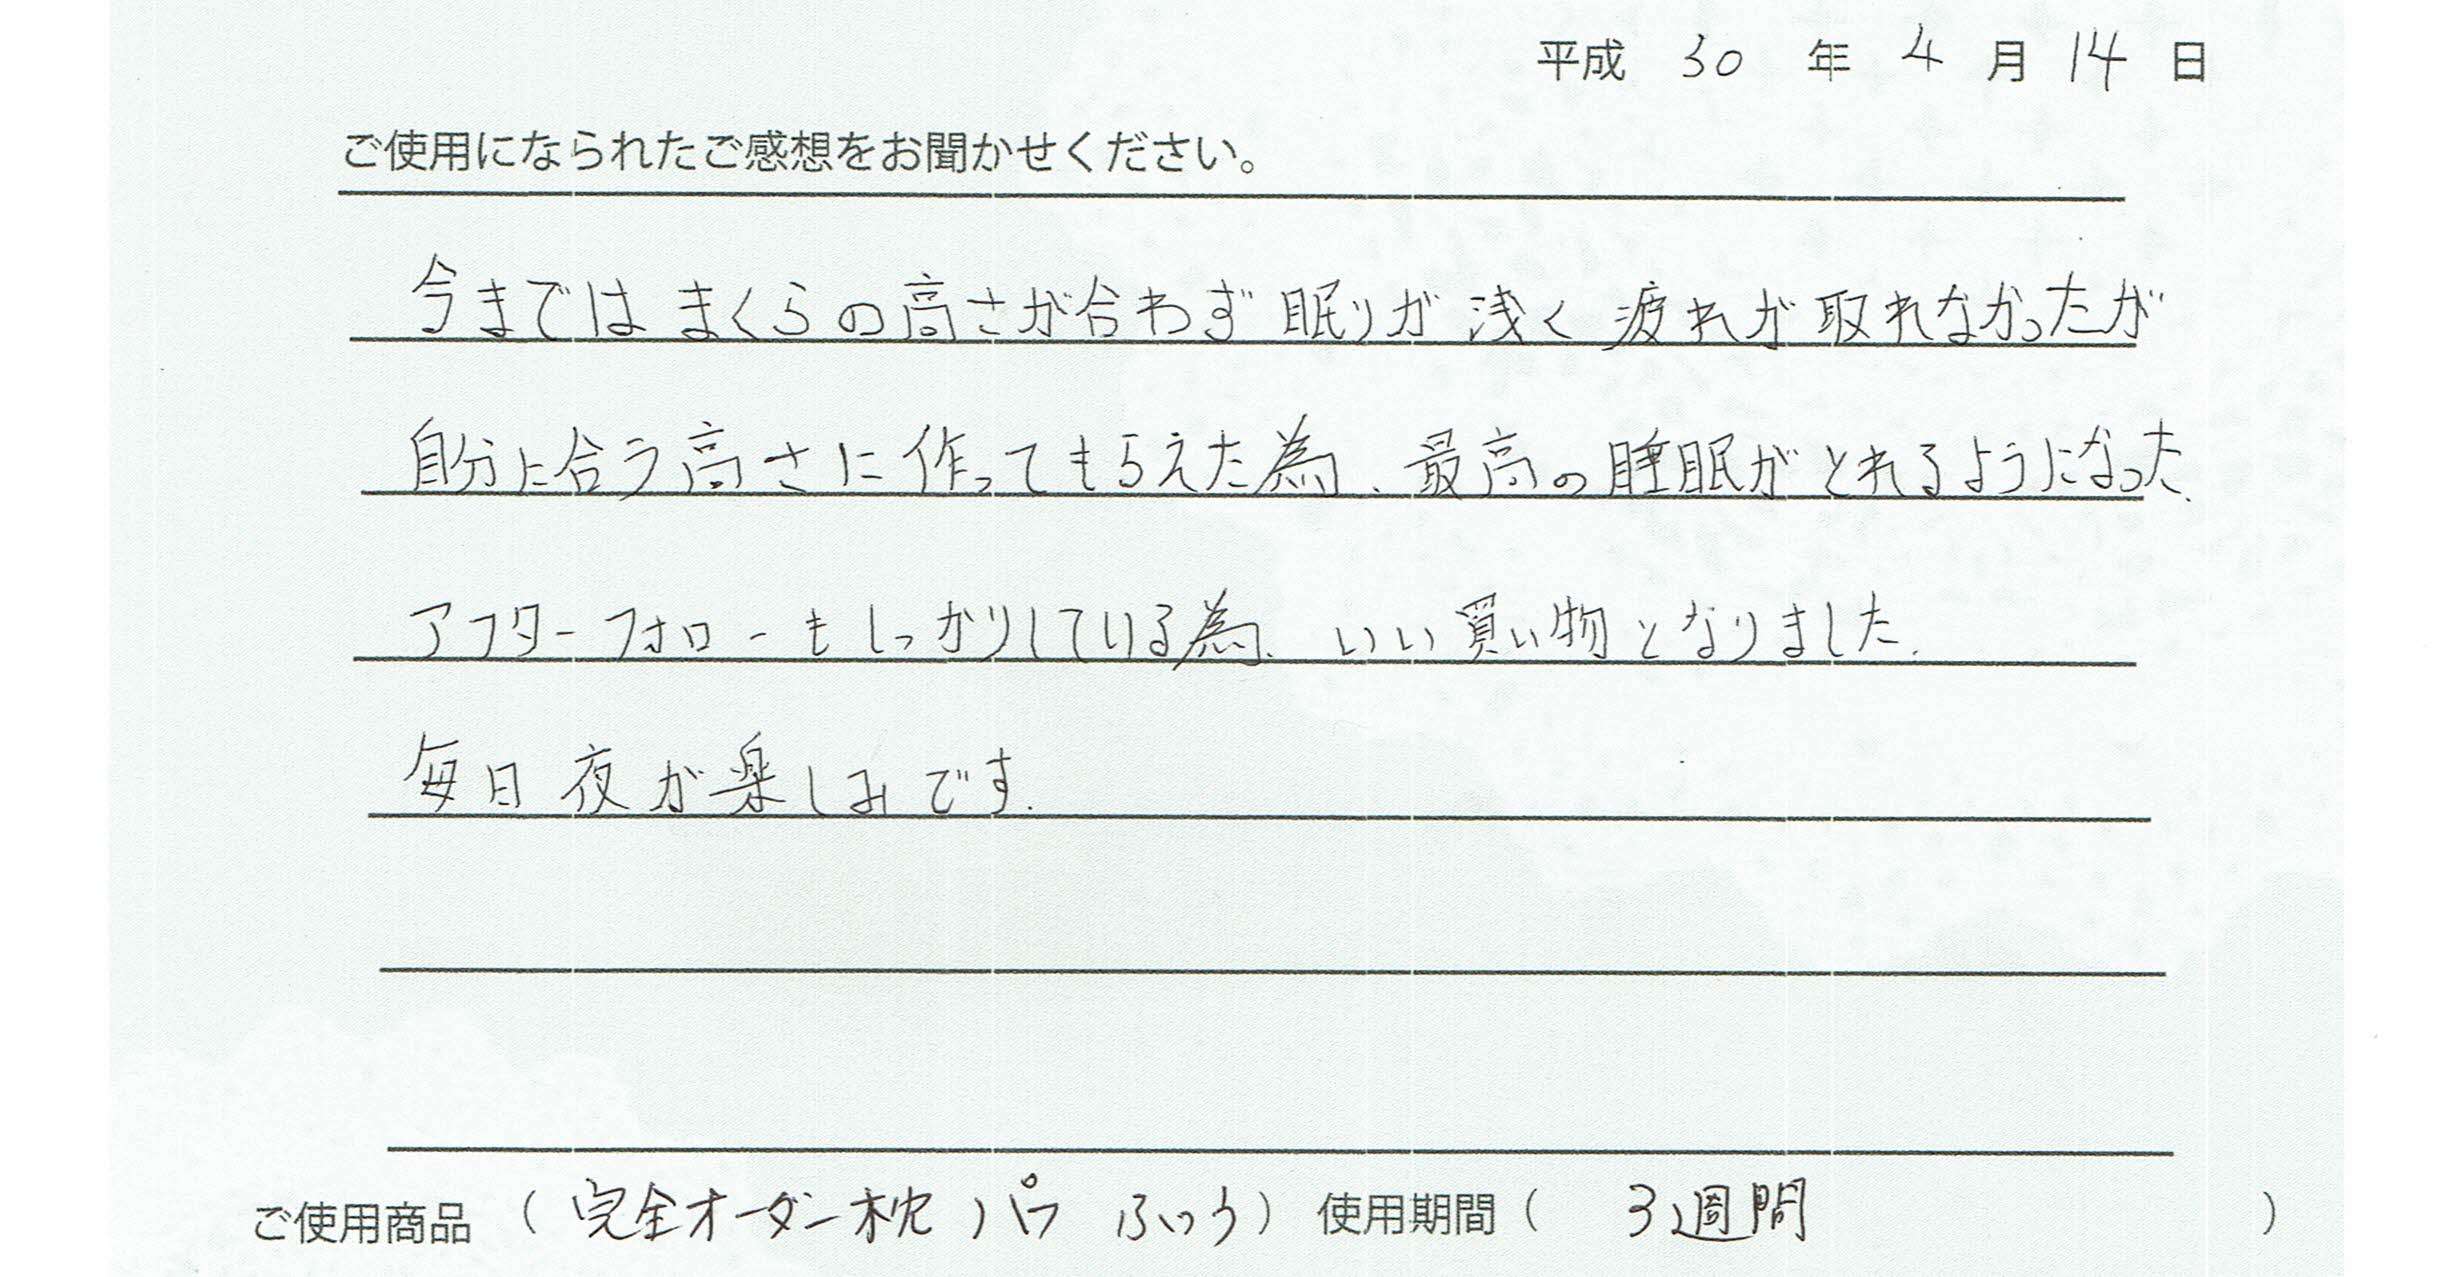 平成 30 年 4 月 14 日
ご使用になられたご感想をお聞かせください。
今までは まくらの高さが合わず 眠りが 浅く 疲れが 取れなかったが
自分に合う高さに作ってもらえた為、最高の睡眠がとれるようになった。
アフターフォローもしっかりしている為、いい買い物となりました。
毎日 夜が楽しみです。
ご使用商品 ( 完全オーダー枕 パフ ふつう ) 使用期間 ( 3週間 )